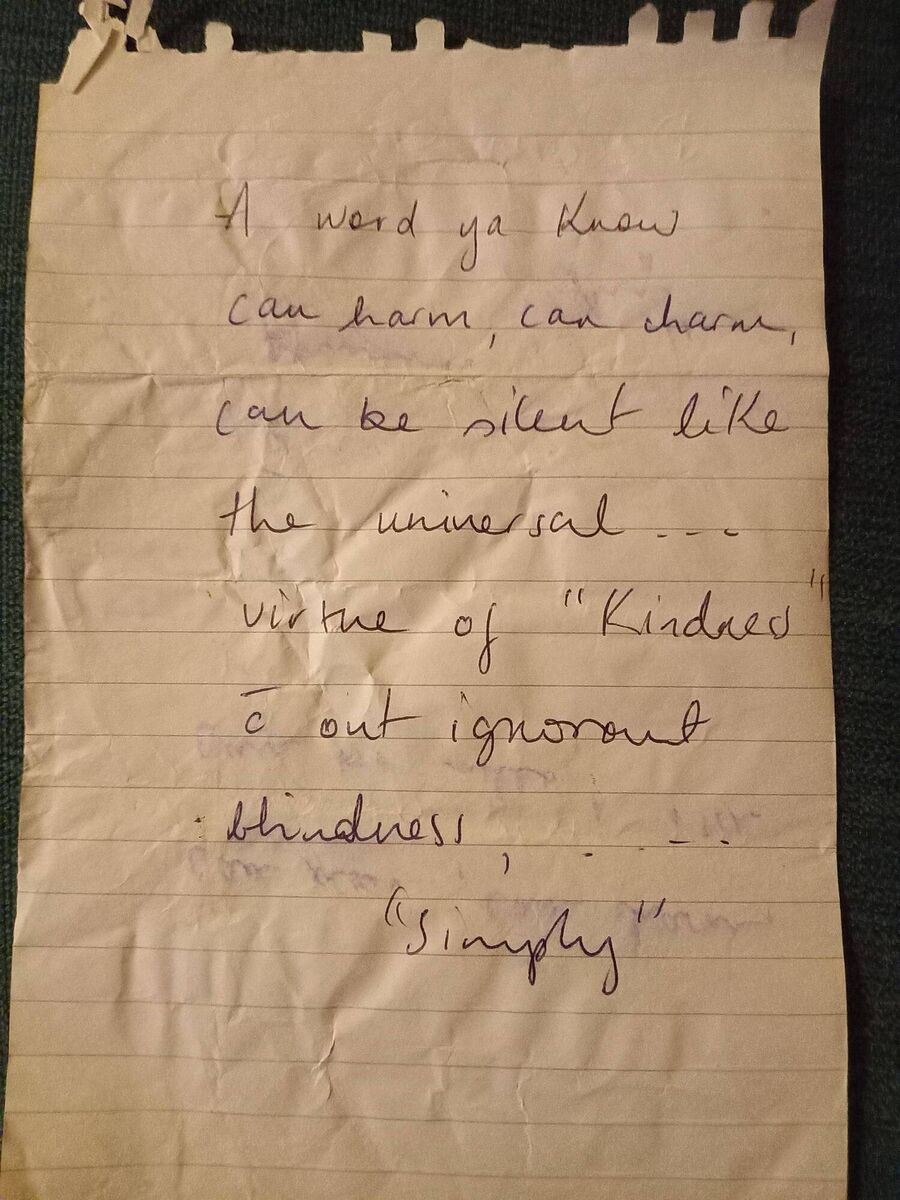 A word ya know
can harm, can charm,
can be silent like
the universal ...
virtue of "Kindness"
c̄ out ignorant
blindness, . ...
"Simply"